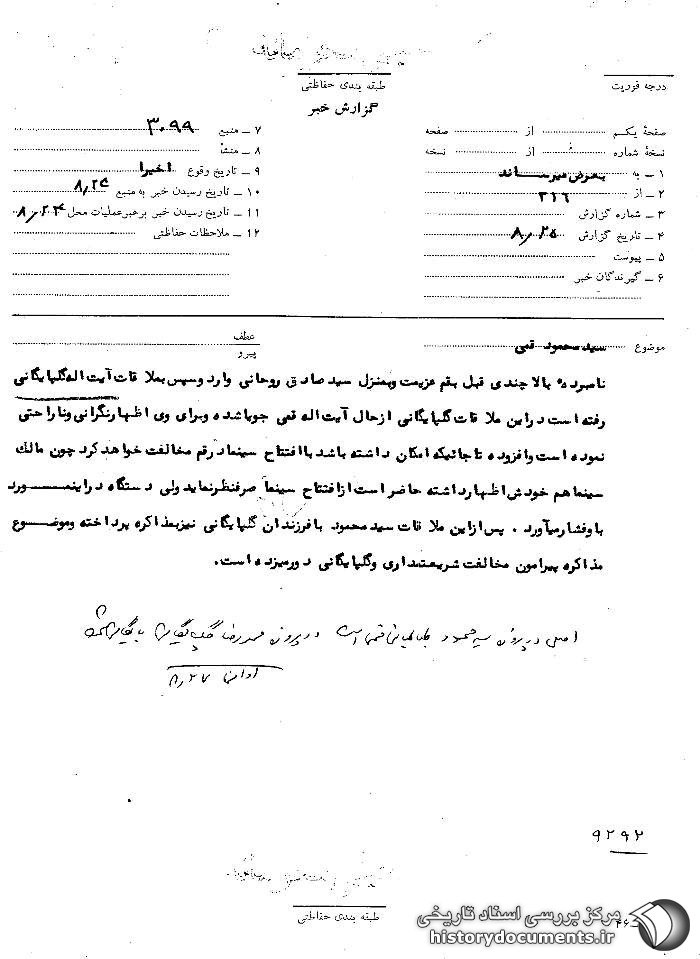 درجه فوریت
طبقه بندی حفاظتی
گزارش خبر
صفحهٔ یکم از صفحه
نسخهٔ شماره از نسخه
۱ ـ به بعرض میرساند
۲ ـ از ۳۱۶
۳ ـ شماره گزارش
۴ ـ تاریخ گزارش ۸٫۲۵
۵ ـ پیوست
۶ ـ گیرندگان خبر
۷ ـ منبع ۳۰۹۹
۸ ـ منشأ
۹ ـ تاریخ وقوع اخیرا
۱۰ ـ تاریخ رسیدن خبر به منبع ۸٫۲۴
۱۱ ـ تاریخ رسیدن خبر برهبر عملیات محل ۸٫۲۴
۱۲ ـ ملاحظات حفاظتی
موضوع سید محمود قمی
عطف
پیرو
نامبرده بالا چندی قبل بقم عزیمت وبمنزل سید صادق روحانی وارد وسپس بملاقات آیت اله گلپایگانی
رفته است در این ملاقات گلپایگانی از حال آیت اله قمی جویا شده وبرای وی اظهار نگرانی وناراحتی
نموده است وافزوده تا جائیکه امکان داشته باشد با افتتاح سینما در قم مخالفت خواهد کرد چون مالك
سینما هم خودش اظهار داشته حاضر است از افتتاح سینما صرفنظر نماید ولی دستگاه در اینمـــورد
باو فشار میآورد . پس از این ملاقات سید محمود با فرزندان گلپایگانی نیز بمذاکره پرداخته وموضــوع
مذاکره پیرامون مخالفت شریعتمداری وگلپایگانی دور میزده است.
اصل در پرونده سید محمود طباطبائی قمی است در پرونده محمد رضا گلپایگانی بایگانی
۸٫۲۷
۹۲۹۲
طبقه بندی حفاظتی
مرکز بررسی اسناد تاریخی
historydocuments.ir